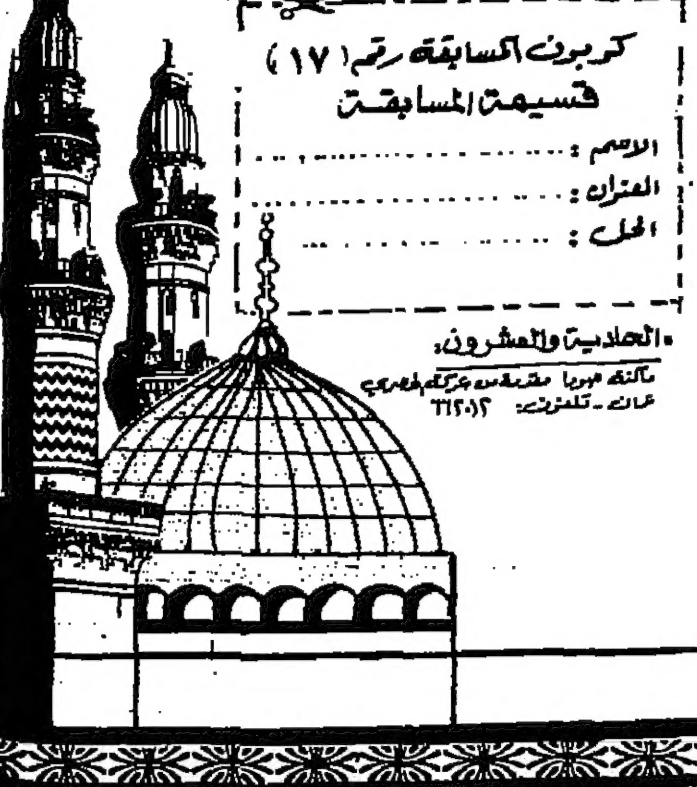 كوبون المسابقة رقم (١٧)
قسيمة المسابقة
الاسم :
العنوان :
الحل :
الحادية والعشرون:
مقدمة من شركة
عمان - تلفون: ٦٦٢٠١٢